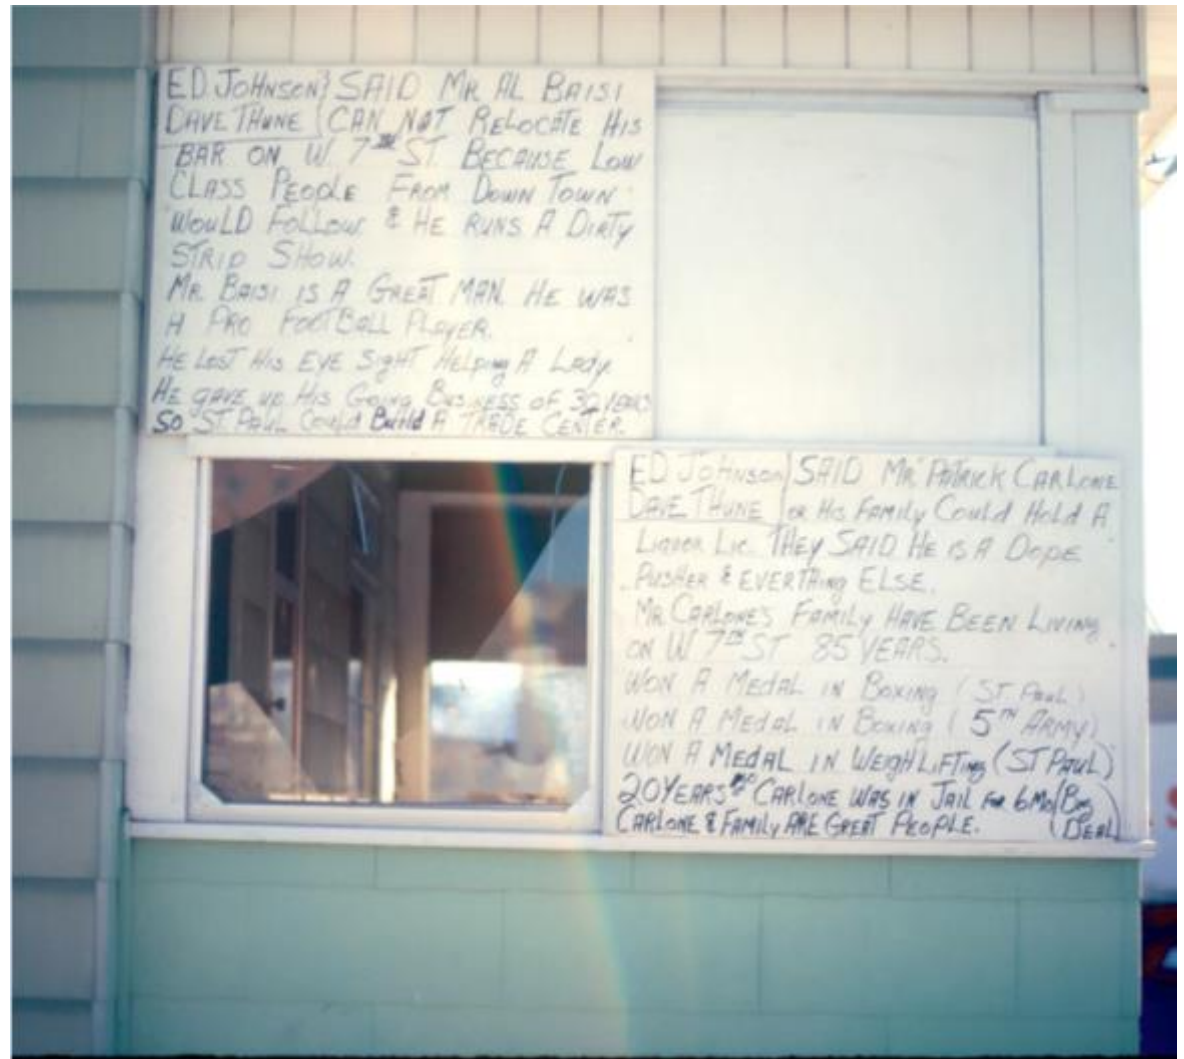 ED JOHNSON} SAID MR AL BAISI
DAVE THUNE (CAN NOT RELOCATE HIS
BAR ON W. 7TH ST. BECAUSE LOW
CLASS PEOPLE FROM DOWN TOWN
WOULD FOLLOW & HE RUNS A DIRTY
STRIP SHOW.
MR. BAISI IS A GREAT MAN. HE WAS
A PRO FOOTBALL PLAYER.
HE LOST HIS EYE SIGHT HELPING A LADY
HE GAVE UP HIS GOING BUSINESS OF 30 YEARS
SO ST. PAUL COULD BUILD A TRADE CENTER.
ED JOHNSON) SAID MR PATRICK CARLONE
DAVE THUNE OR HIS FAMILY COULD HOLD A
LIQUOR LIC. THEY SAID HE IS A DOPE
PUSHER & EVERTHING ELSE.
MR CARLONE'S FAMILY HAVE BEEN LIVING
ON W 7TH ST 85 YEARS.
WON A MEDAL IN BOXING (ST. PAUL)
WON A MEDAL IN BOXING (5TH ARMY)
WON A MEDAL IN WEIGHLIFTING (ST PAUL)
20 YEARS CARLONE WAS IN JAIL FOR 6 MO (BIG
CARLONE & FAMILY ARE GREAT PEOPLE. DEAL)